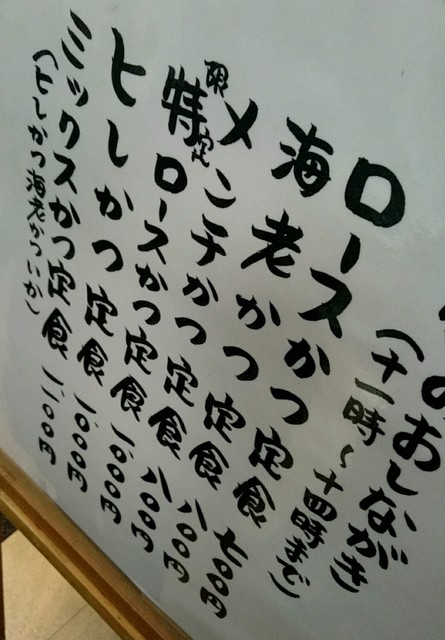 のおしながき
(十一時～十四時まで)
ロースかつ定食 七〇〇円
海老かつ定食 八〇〇円
メンチかつ定食 八〇〇円
限定
特ロースかつ定食 一、〇〇〇円
ヒレかつ定食 一、〇〇〇円
ミックスかつ定食 一、一〇〇円
(ヒレかつ海老かついか)